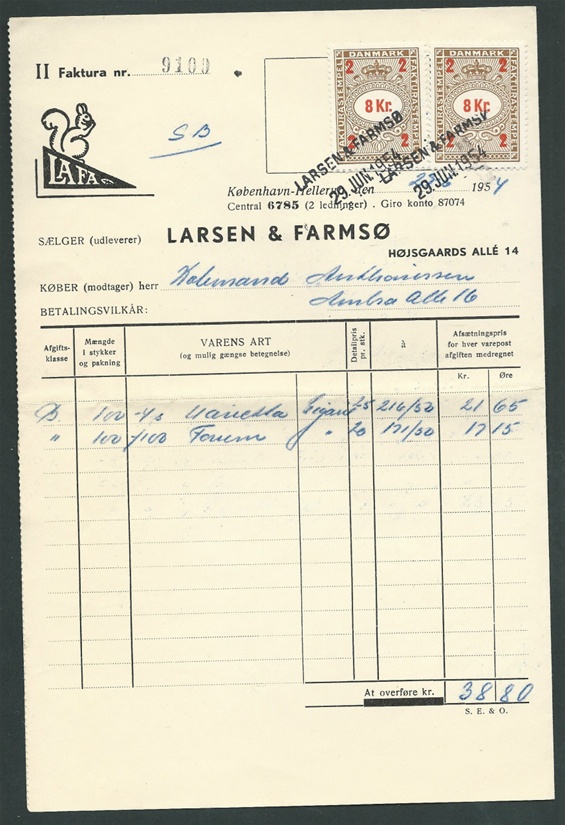 II Faktura nr. 9109
DANMARK DANMARK
2 2 2 2
8 Kr. 8 Kr.
2 2 2 2
FAKTURASTEMPEL FAKTURASTEMPEL
LARSEN & FARMSØ LARSEN & FARMSØ
29. JUN. 1954 29. JUN. 1954
SB
LAFA
København-Hellerup, den 1954
Central 6785 (2 ledninger) . Giro konto 87074
SÆLGER (udleverer) LARSEN & FARMSØ
HØJSGAARDS ALLÉ 14
KØBER (modtager) herr Købmand
Ambra Alle 16
BETALINGSVILKÅR:
Afgifts-klasse Mængde i stykker og pakning VARENS ART (og mulig gængse betegnelse) Detailpris pr. stk. à Afsætningspris for hver varepost afgiften medregnet
Kr. Øre
B 100 Marietta 25 216/50 21 65
" 100 /100 Forum " 20 171/50 17 15
At overføre kr. 38 80
S. E. & O.